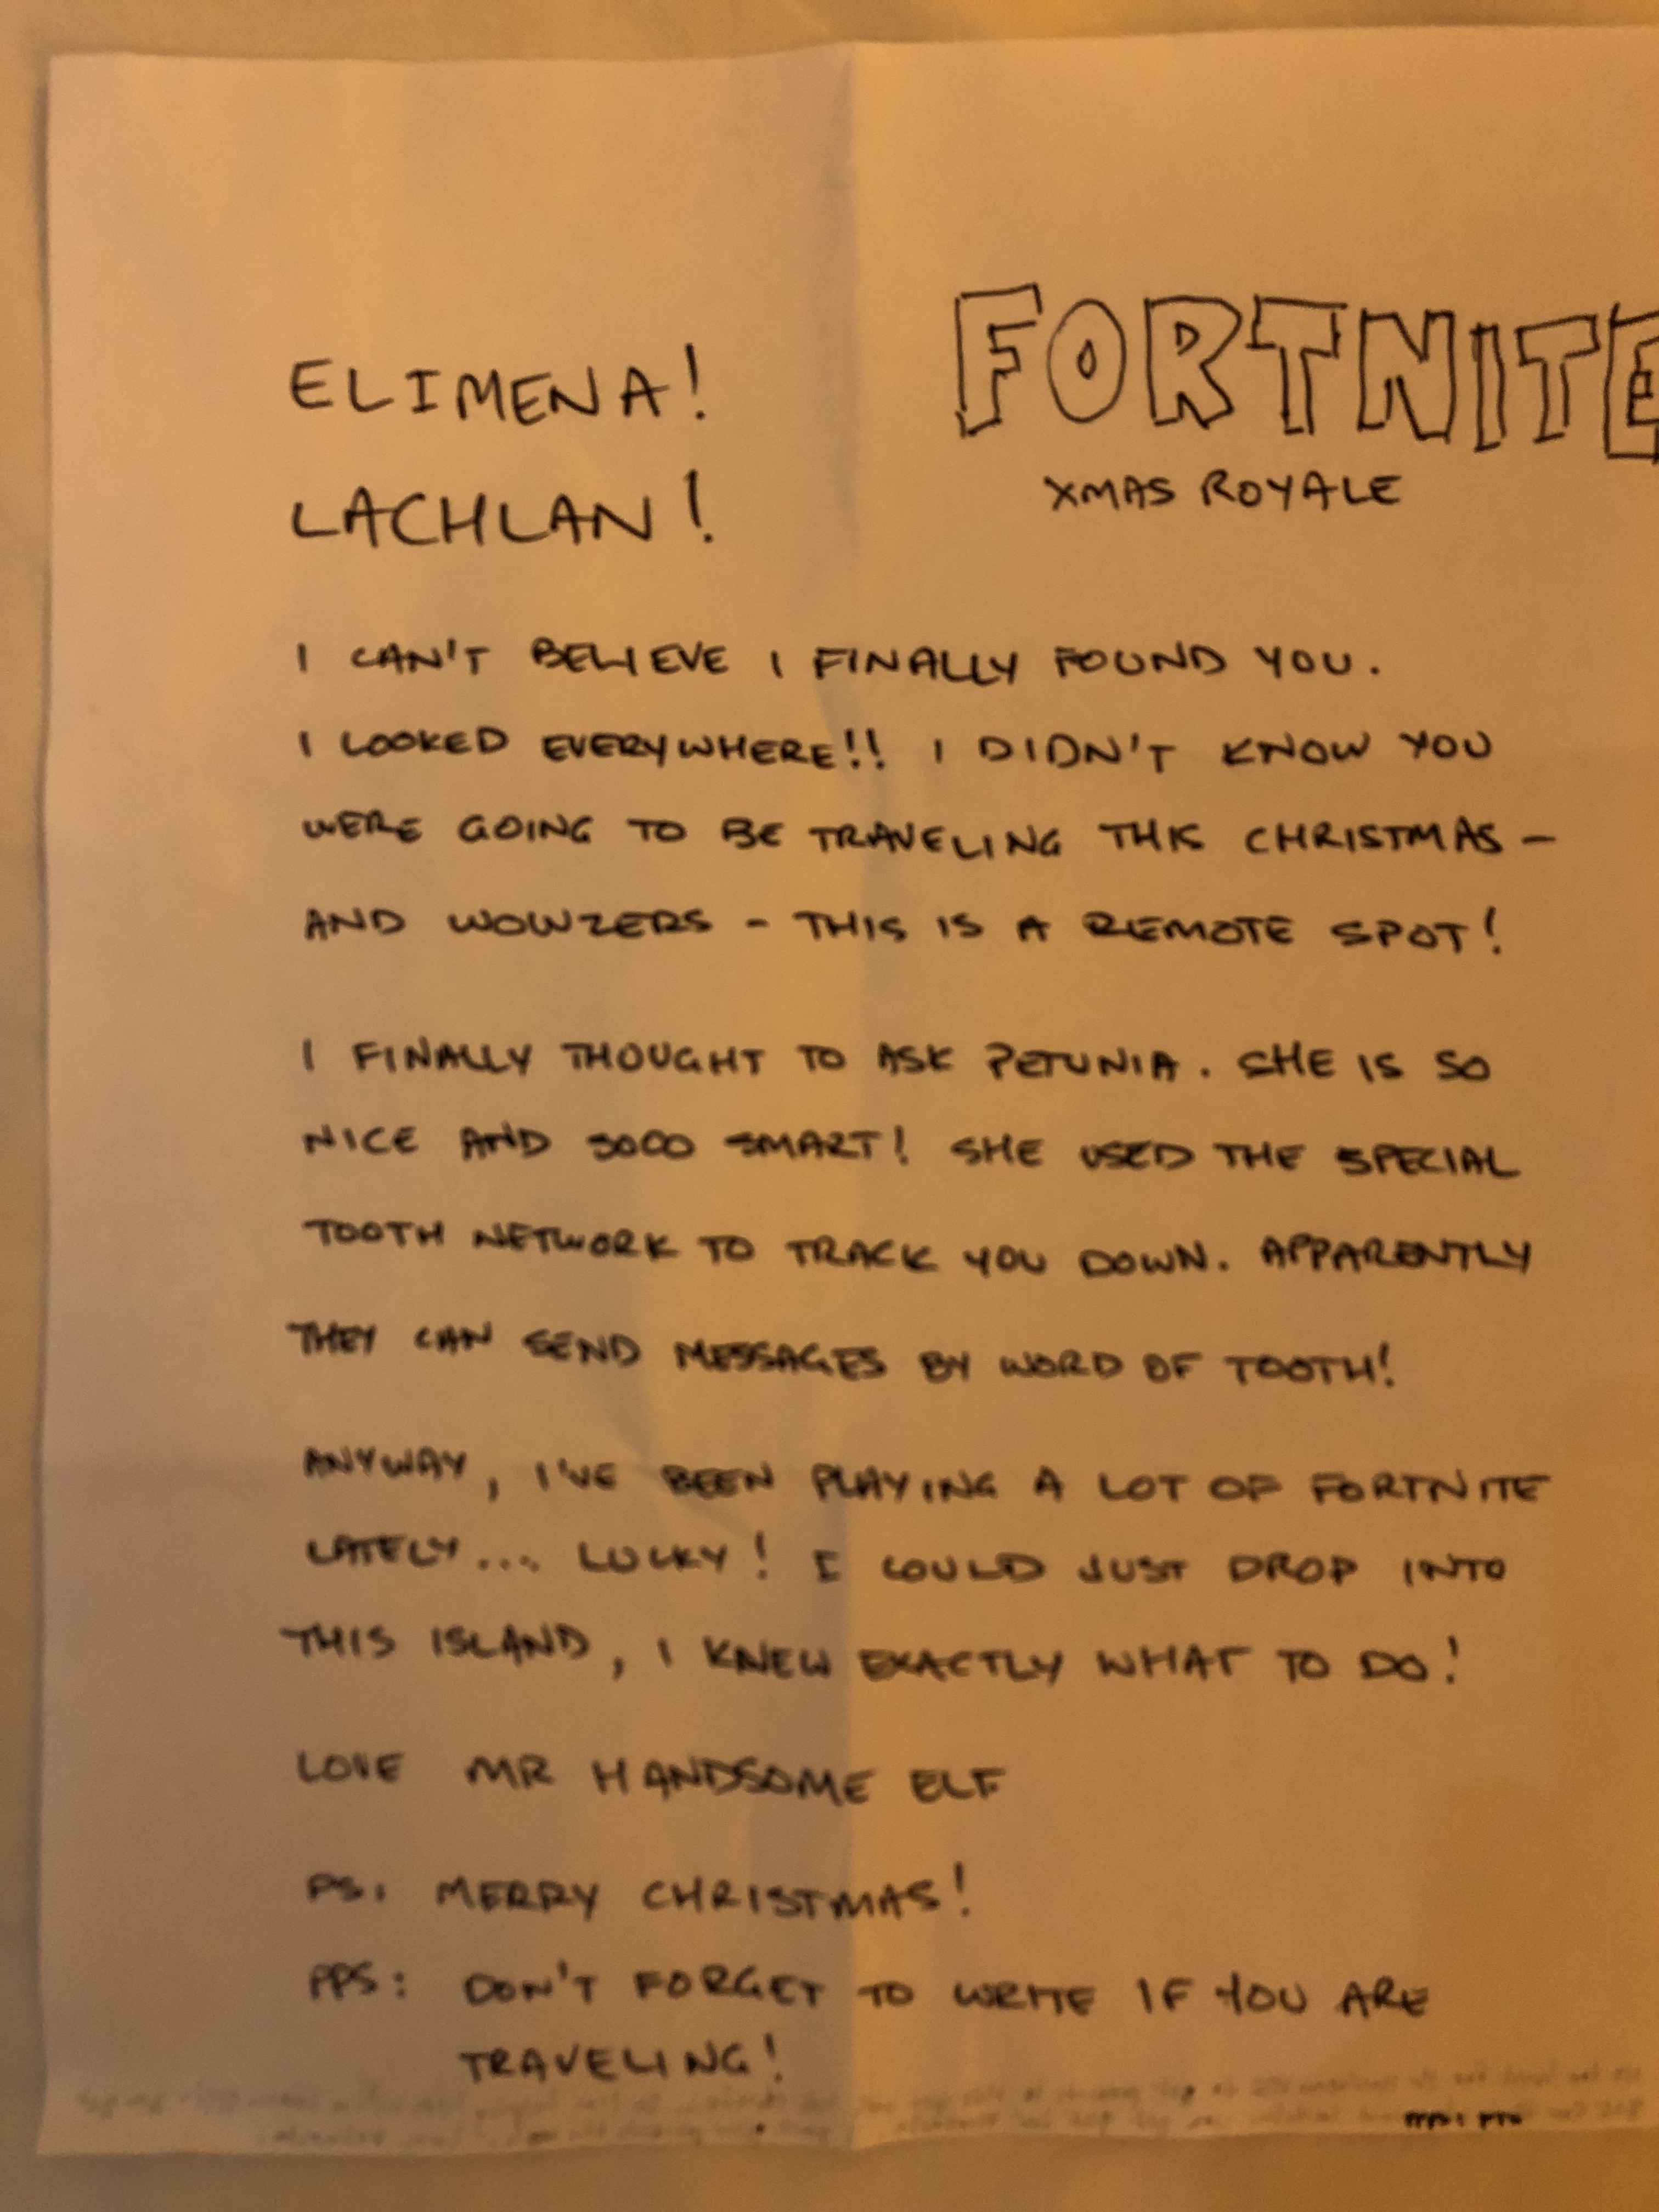 ELIMENA!
LACHLAN!
FORTNITE
XMAS ROYALE
I CAN'T BELIEVE I FINALLY FOUND YOU.
I LOOKED EVERYWHERE!! I DIDN'T KNOW YOU
WERE GOING TO BE TRAVELING THIS CHRISTMAS -
AND WOWZERS - THIS IS A REMOTE SPOT!
I FINALLY THOUGHT TO ASK PETUNIA. SHE IS SO
NICE AND SOOO SMART! SHE USED THE SPECIAL
TOOTH NETWORK TO TRACK YOU DOWN. APPARENTLY
THEY CAN SEND MESSAGES BY WORD OF TOOTH!
ANYWAY, I'VE BEEN PLAYING A LOT OF FORTNITE
LATELY.... LUCKY! I COULD JUST DROP INTO
THIS ISLAND, I KNEW EXACTLY WHAT TO DO!
LOVE MR HANDSOME ELF
PS: MERRY CHRISTMAS!
PPS: DON'T FORGET TO WRITE IF YOU ARE
TRAVELING!
PTO